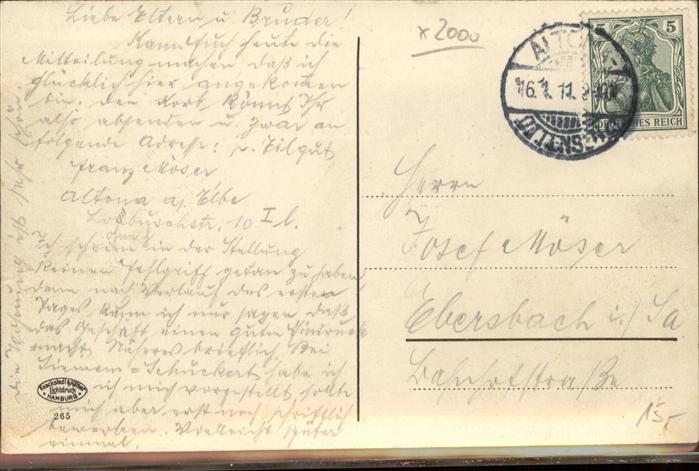 Liebe Eltern u Bruder!
Kann Euch heute die
Mitteilung machen daß ich
glücklich hier angekommen
bin. Den Korb könnt Ihr
also absenden u. zwar an
folgende Adresse: p. Eilgut
Franz Möser
Altona a/ Elbe
10 I l.
Ich scheine in der Stellung
keinen Fehlgriff getan zu haben
denn nach Verlauf des ersten
Tages kann ich nur sagen daß
das Geschäft einen guten Eindruck
macht. Näheres brieflich. Bei
Siemens-Schuckert habe ich
mich vorgestellt sollte
mich aber erst noch schriftlich
bewerben. Vielleicht später
einmal.
die Wohnung ist sehr schön.
x 2000
ALTONA
16.1.11
5
DEUTSCHES REICH
Herrn
Josef Möser
Ebersbach i/ Sa
Bahnhofstraße
15,-
Knackstedt & Näther
Lichtdruck
HAMBURG
265